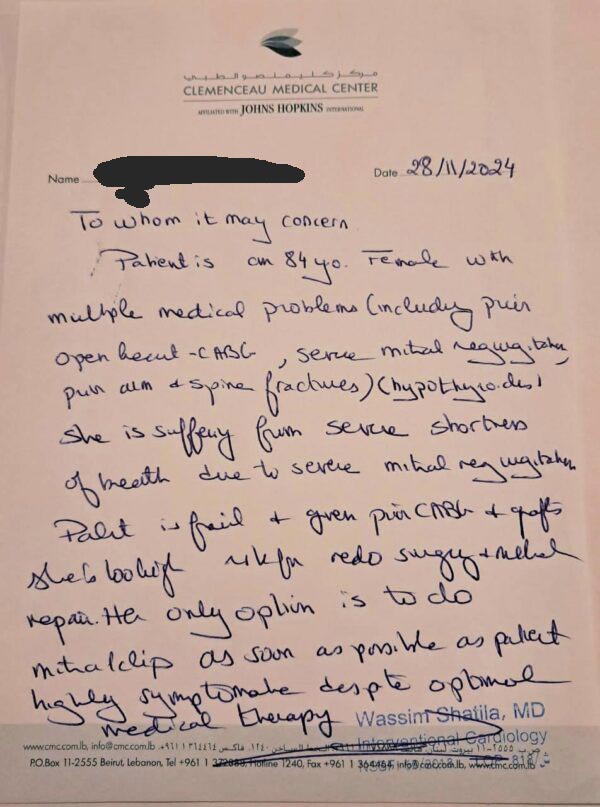 مركز كليمنصو الطبي
CLEMENCEAU MEDICAL CENTER
AFFILIATED WITH JOHNS HOPKINS INTERNATIONAL
Name
Date 28/11/2024
To whom it may concern
Patient is an 84 y.o. Female with
multiple medical problems (including prior
open heart - CABG, severe mitral regurgitation,
prior arm + spine fractures) (hypothyroidism)
She is suffering from severe shortness
of breath due to severe mitral regurgitation
Patient is frail + given prior CABG + grafts
she is too high risk for redo surgery + mitral
repair. Her only option is to do
mitral clip as soon as possible as patient
highly symptomatic despite optimal
medical therapy
Wassim Shatila, MD
Interventional Cardiology
www.cmc.com.lb, info@cmc.com.lb
P.O.Box 11-2555 Beirut, Lebanon, Tel +961 1 372888, Hotline 1240, Fax +961 1 364464, info@cmc.com.lb, www.cmc.com.lb